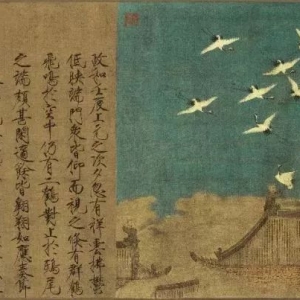 政和壬辰上元之次夕忽有祥雲拂鬱
低映端門衆皆仰而視之倏有群鶴
飛鳴於空中仍有二鶴對止於鴟尾
之端頗甚閑適餘皆翱翔如應奏節